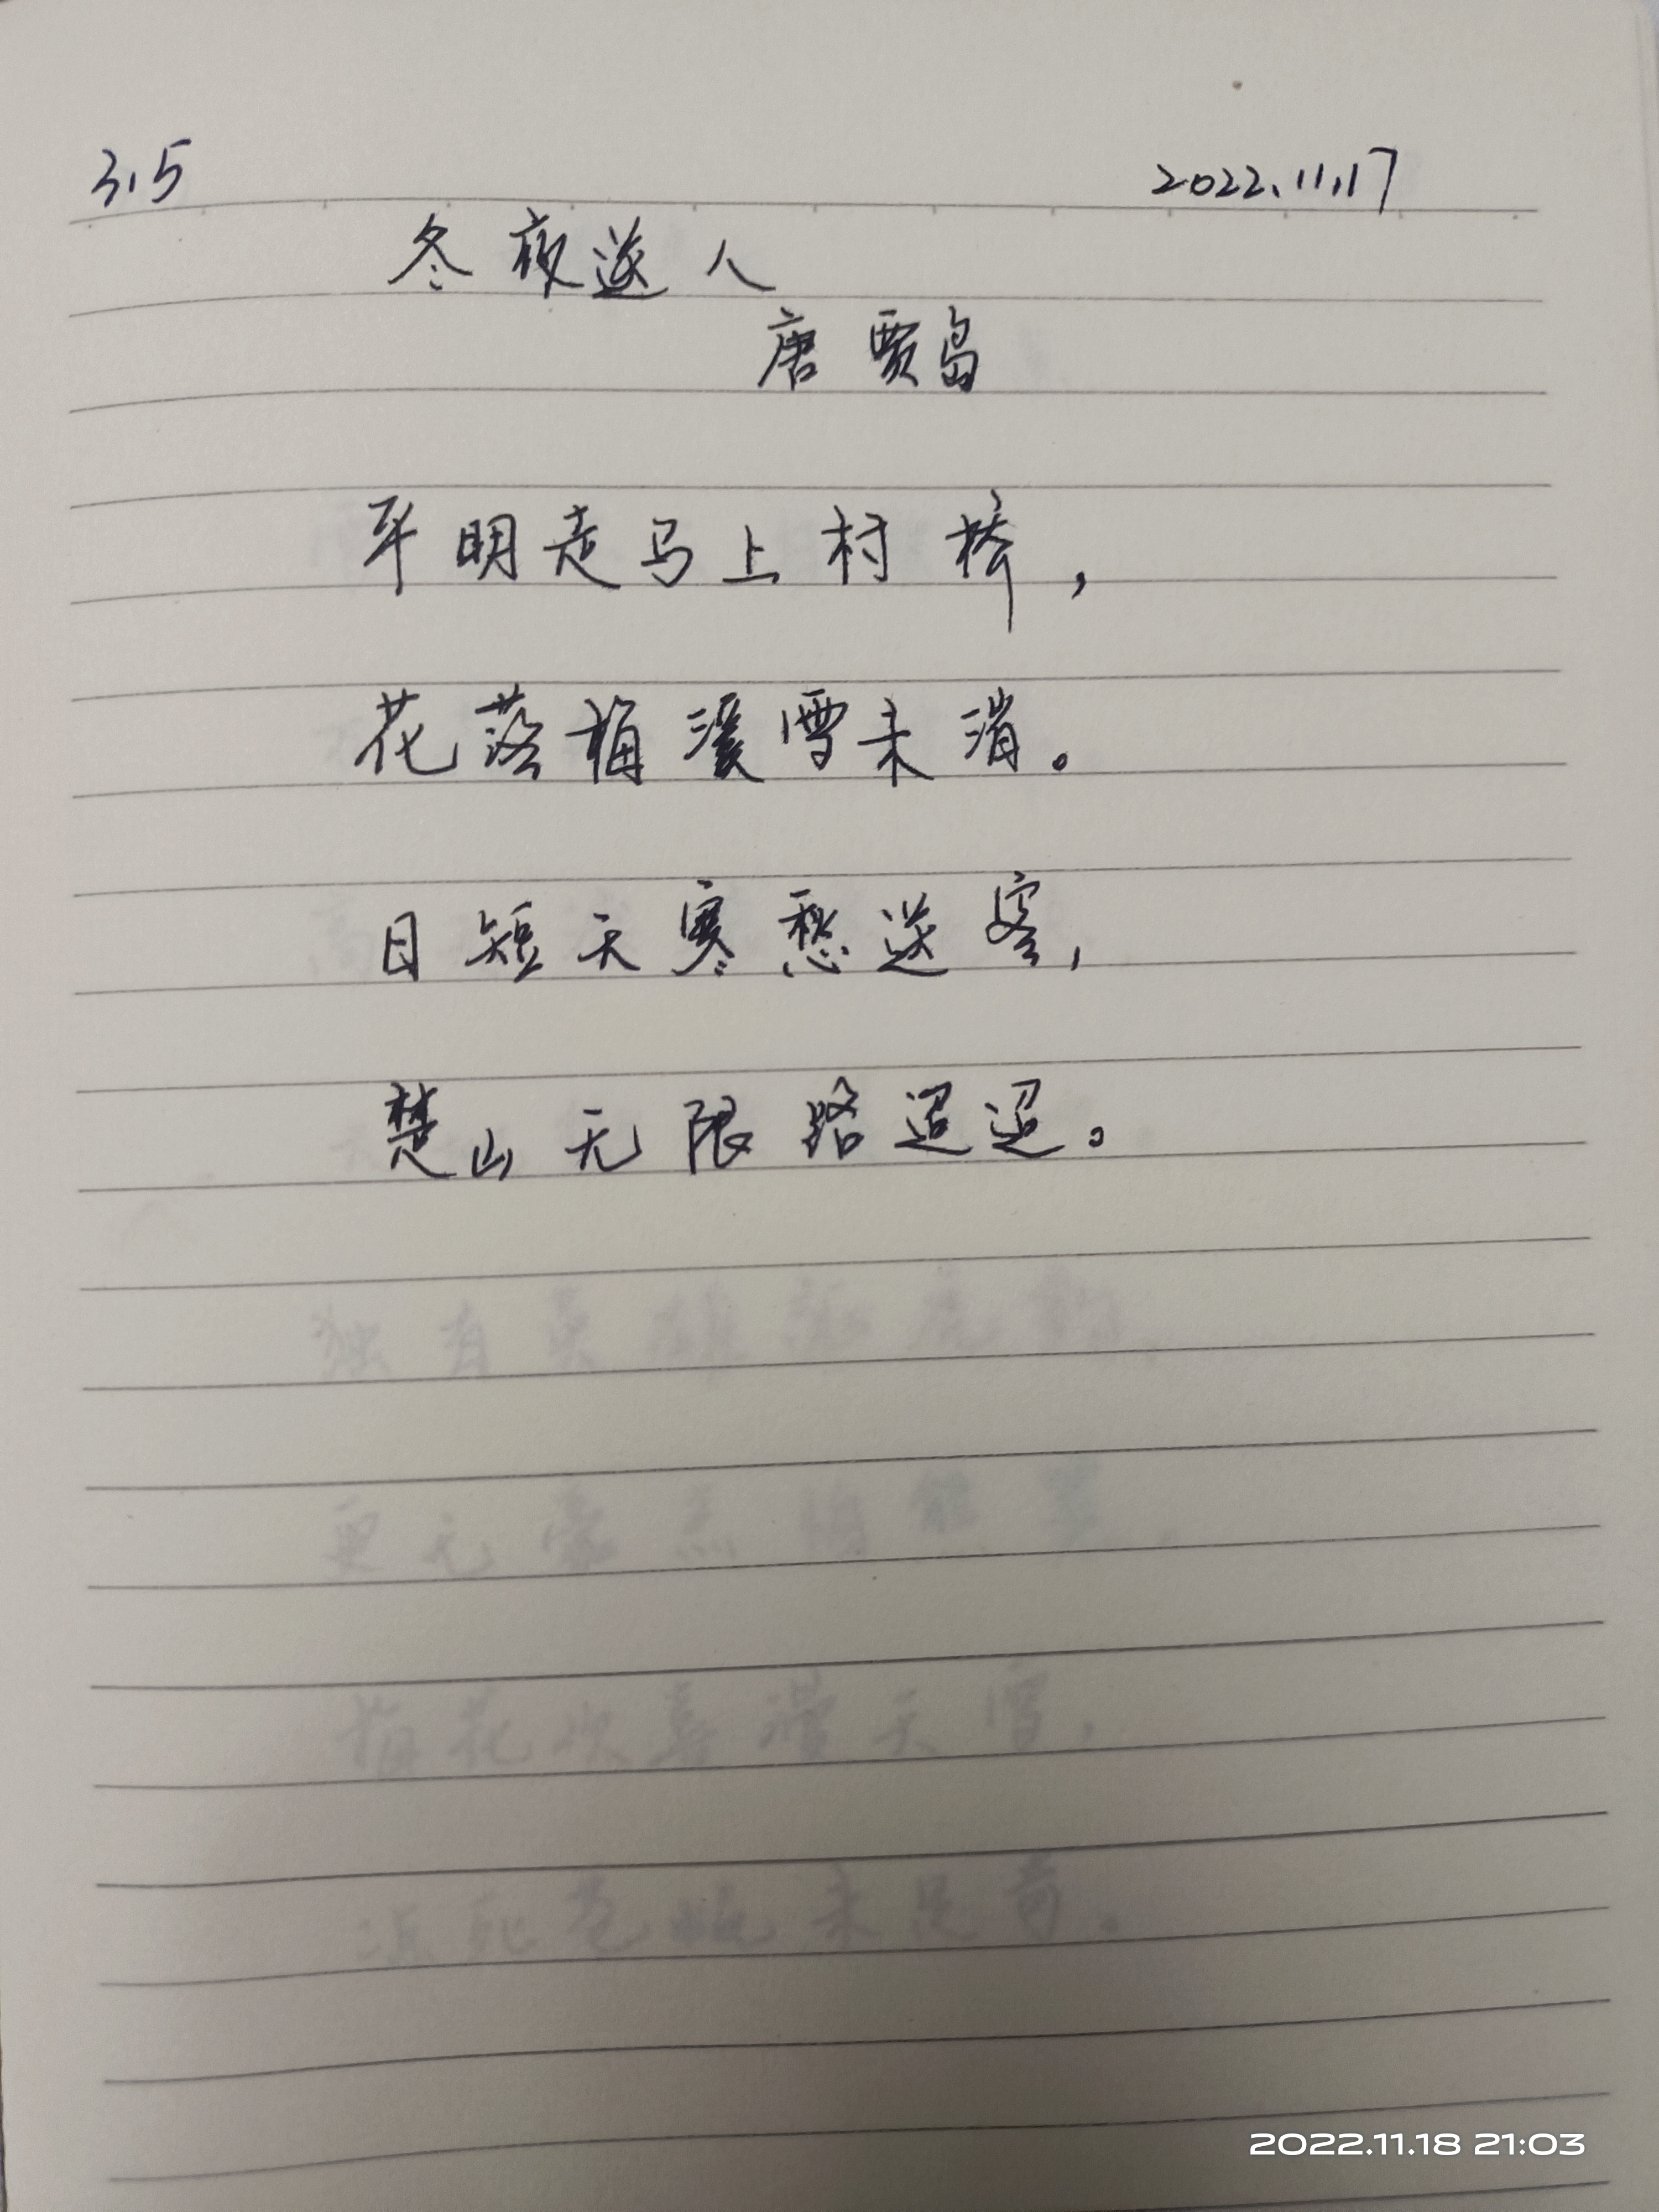 3.5 2022.11.17
冬夜送人
唐 贾岛
平明走马上村桥，
花落梅溪雪未消。
日短天寒愁送客，
楚山无限路迢迢。
2022.11.18 21:03